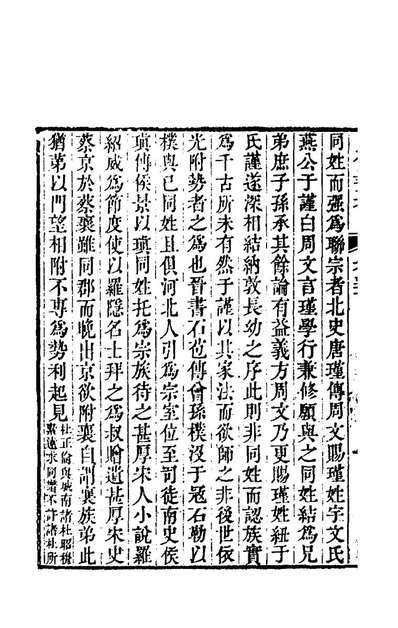 同姓而强爲聯宗者北史唐瑾傳周文賜瑾姓宇文氏
燕公于謹白周文言瑾學行兼修願與之同姓結爲兄
弟庶子孫承其餘論有益義方周文乃更賜瑾姓紐于
氏謹遂深相結納敦長幼之序此則非同姓而認族實
爲千古所未有然于謹以其家法而欲師之非後世依
光附勢者之爲也晉書石苞傳曾孫樸沒于寇石勒以
樸與已同姓且俱河北人引爲宗室位至司徒南史侯
瑱傳侯景以瑱同姓托爲宗族待之甚厚宋人小說羅
紹威爲節度使以羅隱名士拜之爲叔贈遺甚厚宋史
蔡京於蔡襄雖同郡而晚出京欲附襄自謂襄族弟此
猶弟以門望相附不專爲勢利起見杜正倫與城南諸杜昭穆
素遠求同譜不許諸杜所